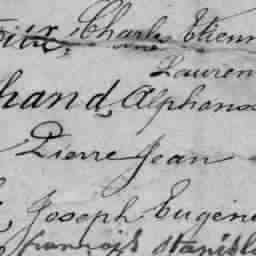 Charles Etienn
Lauren
hand, Alphons
Pierre Jean
Joseph Eugène
françois stanisl